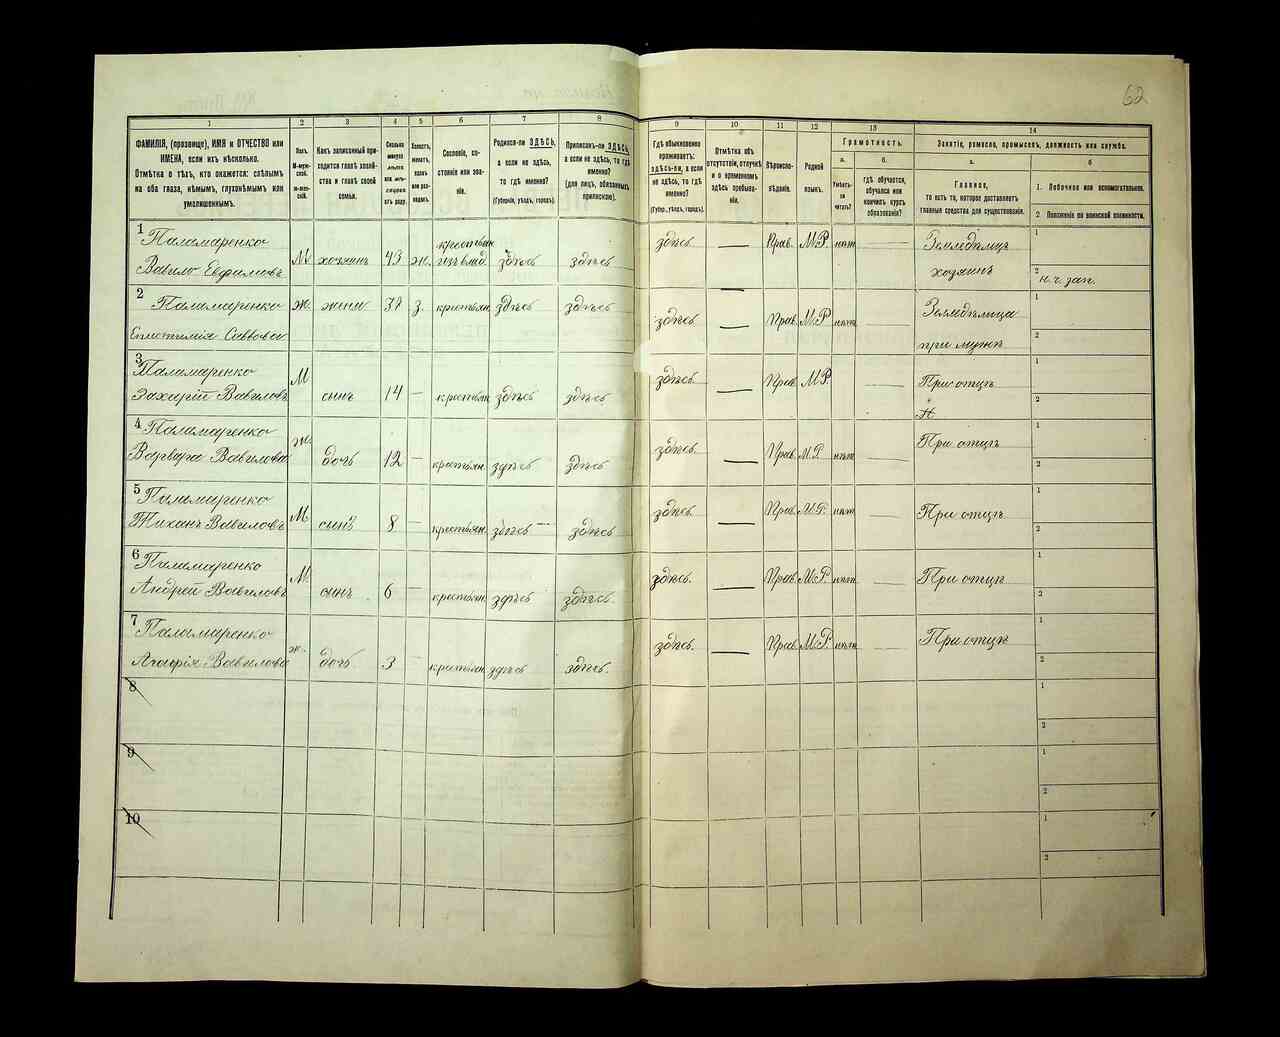 62
1 2 3 4 5 6 7 8 9 10 11 12 13 14
ФАМИЛІЯ, (прозвище), ИМЯ и ОТЧЕСТВО или
ИМЕНА, если ихъ нѣсколько.
Отмѣтка о тѣхъ, кто окажется: слѣпымъ
на оба глаза, нѣмымъ, глухонѣмымъ или
умалишеннымъ.
Полъ.
М-мужской.
Ж-женскій.
Какъ записанный приходится
главѣ хозяйства
и главѣ своей
семьи.
Сословіе, состояніе
или званіе.
Родился-ли ЗДѢСЬ,
а если не здѣсь,
то гдѣ именно?
(Губернія, уѣздъ, городъ).
Приписанъ-ли ЗДѢСЬ,
а если не здѣсь, то гдѣ
именно?
(для лицъ, обязанныхъ
припискою).
Гдѣ обыкновенно
проживаетъ:
здѣсь-ли, а если
не здѣсь, то гдѣ
именно?
(Губер., уѣздъ, городъ).
Отмѣтка объ
отсутствіи, отлучкѣ
и о временномъ
здѣсь пребываніи.
Вѣроисповѣданіе.
Родной
языкъ.
Грамотность.
а.
Умѣетъ-ли
читать?
б.
гдѣ обучается,
обучался или
кончилъ курсъ
образованія?
Занятіе, ремесло, промыселъ, должность или служба.
а.
Главное,
то есть то, которое доставляетъ
главныя средства для существованія.
б
1. Побочное или вспомогательное.
2. Положеніе по воинской повинности.
1 Паламаренко
Вавило Евфимовъ М хозяинъ 43 ж. крестьян изъ влад здѣсь здѣсь здѣсь Прав. М.Р. нѣт
Земледѣлиць
хозяинъ
н.ч. зап.
2 Паламаренко
Савовы ж. жена з. крестьян здѣсь здѣсь здѣсь Прав. М.Р нѣт
Земледѣлица
при мужѣ
3 Паламаренко
Захарій Вавиловъ М сынъ 14 — крестьян здѣсь здѣсь здѣсь Прав. М.Р. При отцѣ
4 Паламаренко
Варвара Вавилова ж. дочь 12 — крестьян здѣсь здѣсь здѣсь Прав. М.Р. нѣт При отцѣ
5 Паламаренко
Тихонъ Вавиловъ М сынъ 8 — крестьян. здѣсь здѣсь здѣсь Прав. М.Р. нѣт При отцѣ
6 Паламаренко
Андрей Вавиловъ М. сынъ 6 — крестьян. здѣсь здѣсь. здѣсь. Прав. М.Р. нѣт При отцѣ
7 Паламаренко
Агафія Вавилова ж. дочь 3 — крестьян здѣсь здѣсь. здѣсь. Прав. М.Р. нѣт При отцѣ
8
9
10